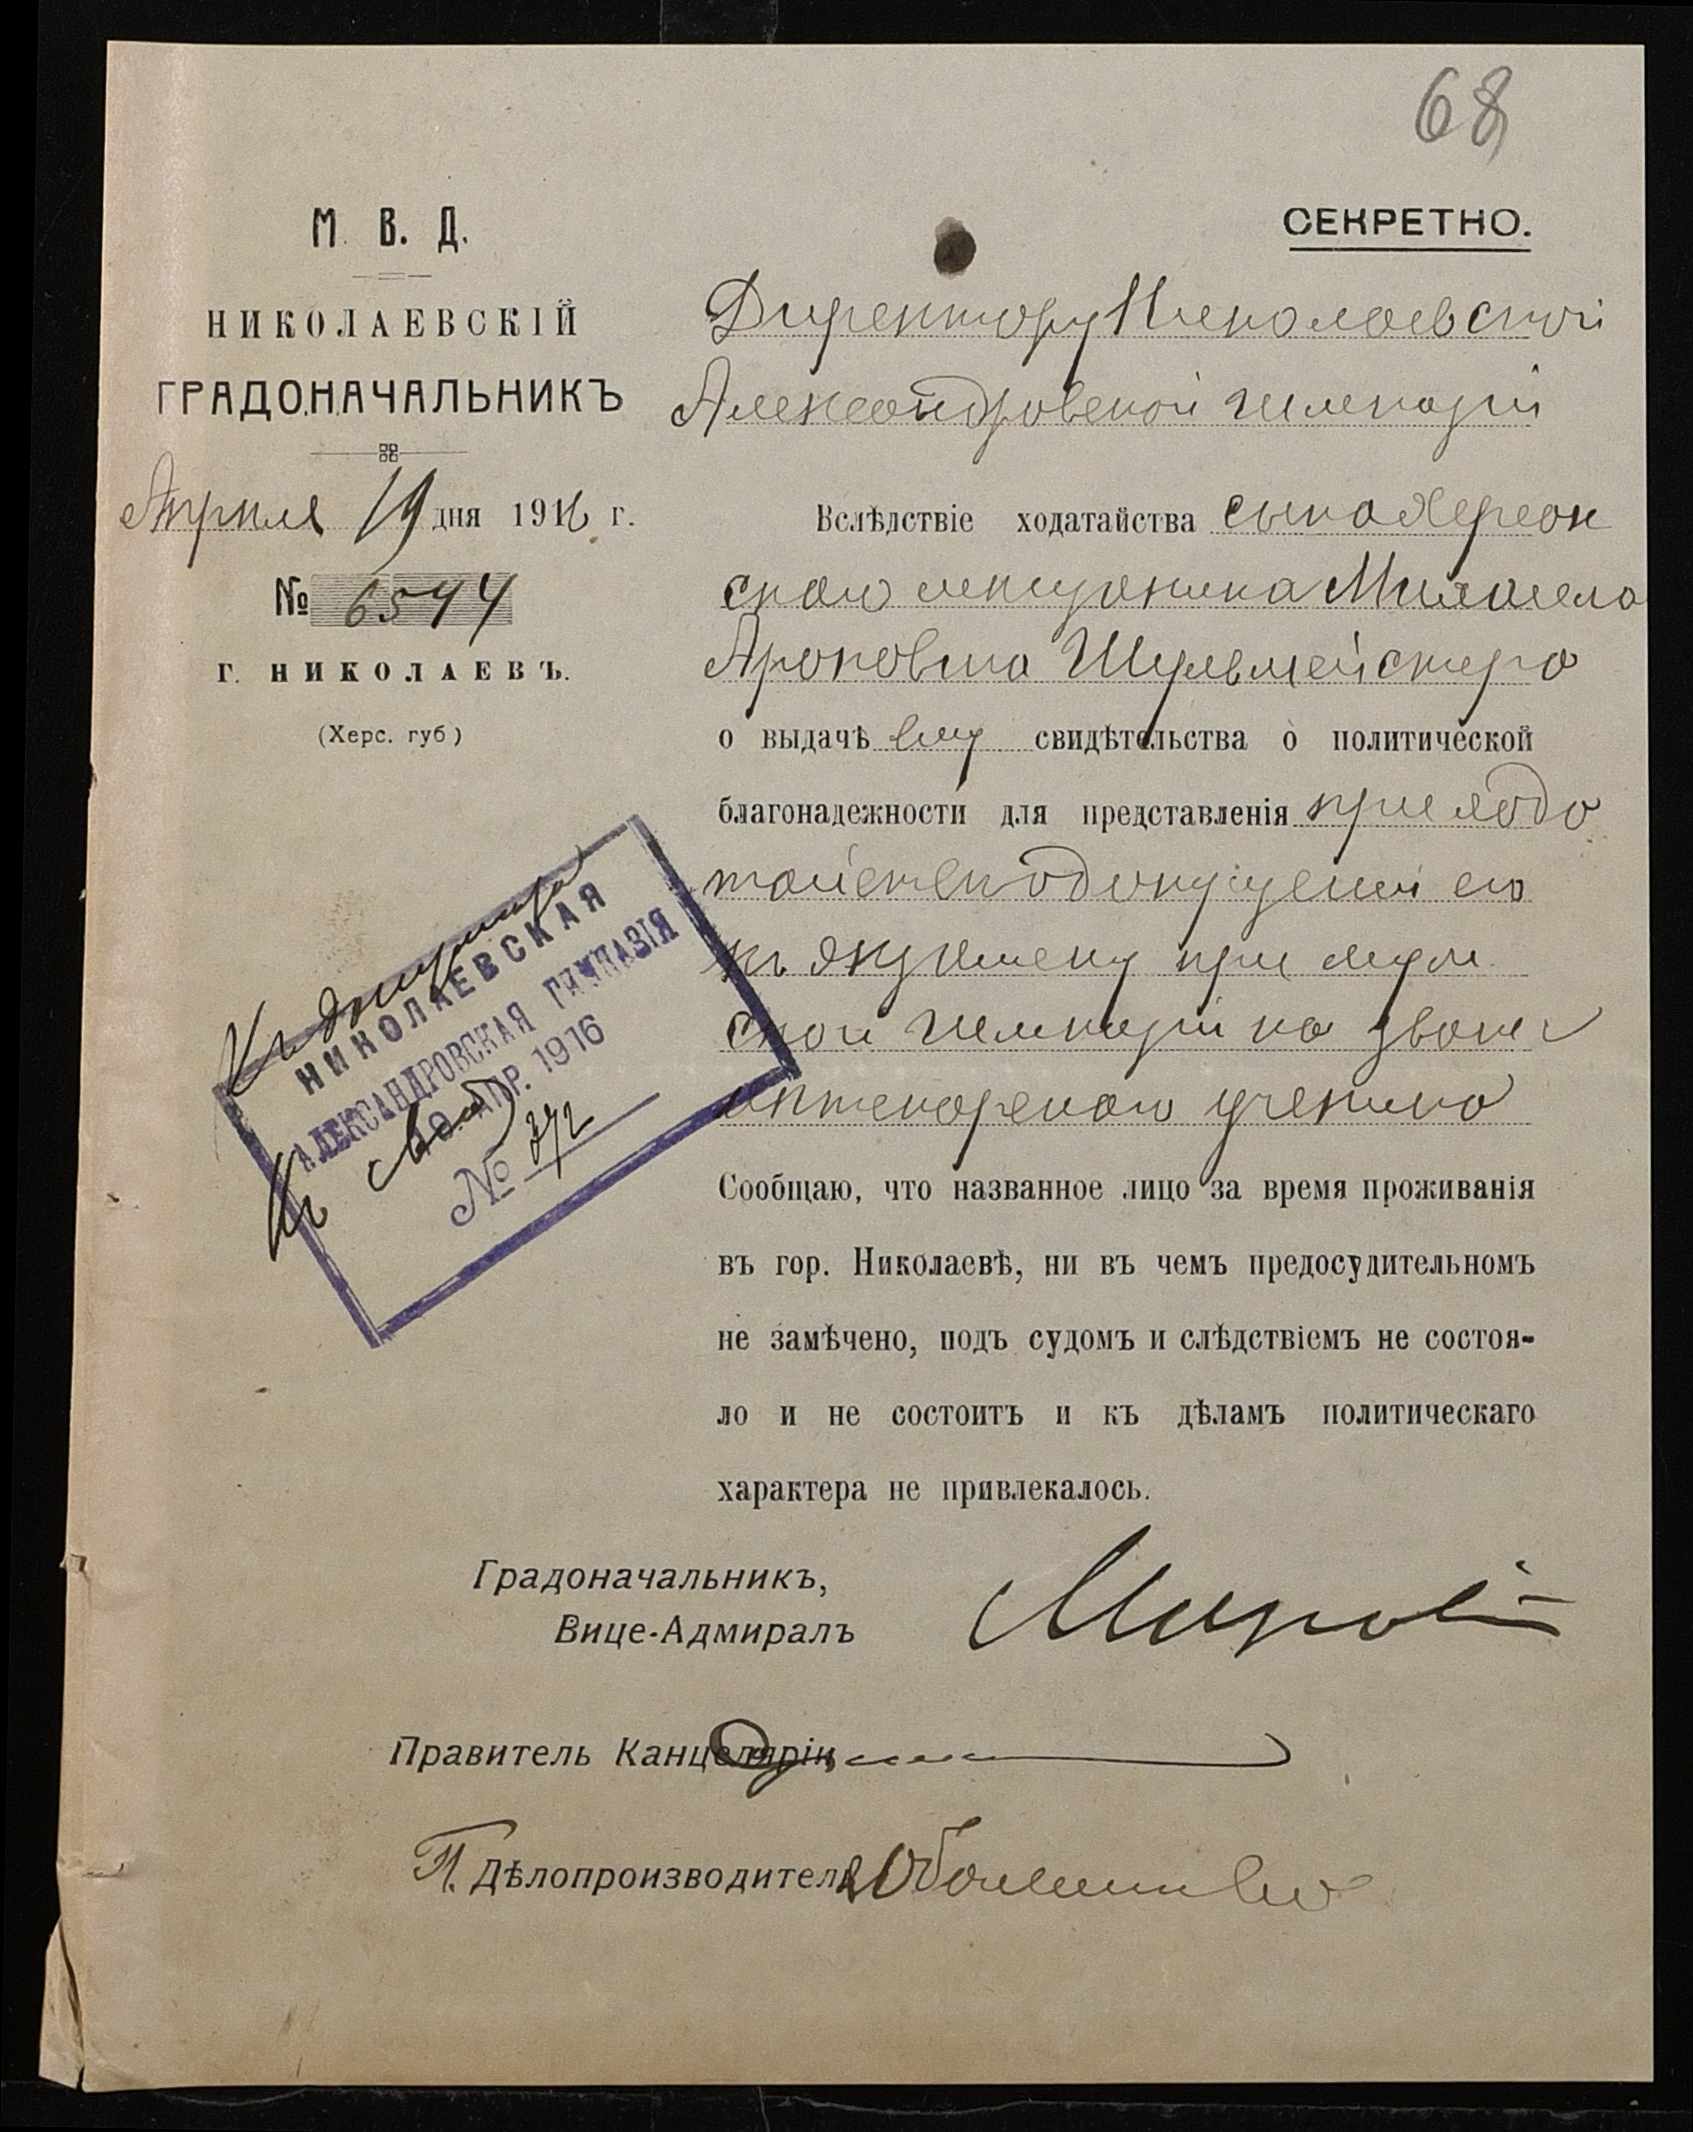 68
М. В. Д.
НИКОЛАЕВСКІЙ
ГРАДОНАЧАЛЬНИКЪ
Апрѣля 19 дня 1916 г.
№ 6544
Г. НИКОЛАЕВЪ.
(Херс. губ)
СЕКРЕТНО.
Директору Николаевской
Александровской гимназіи
Вслѣдствіе ходатайства сына Херсон
скаго мѣщанина Михаила
Ароновича Шульмейстера
о выдачѣ ему свидѣтельства о политической
благонадежности для представленія при хода
тайствѣ о допущеніи его
къ экзамену при муж
ской гимназіи на званіе
аптекарскаго ученика
Сообщаю, что названное лицо за время проживанія
въ гор. Николаевѣ, ни въ чемъ предосудительномъ
не замѣчено, подъ судомъ и слѣдствіемъ не состоя-
ло и не состоитъ и къ дѣламъ политическаго
характера не привлекалось.
НИКОЛАЕВСКАЯ
АЛЕКСАНДРОВСКАЯ ГИМНАЗІЯ
АПР. 1916
№
Градоначальникъ,
Вице-Адмиралъ
Правитель Канцеляріи,
П. Дѣлопроизводителя